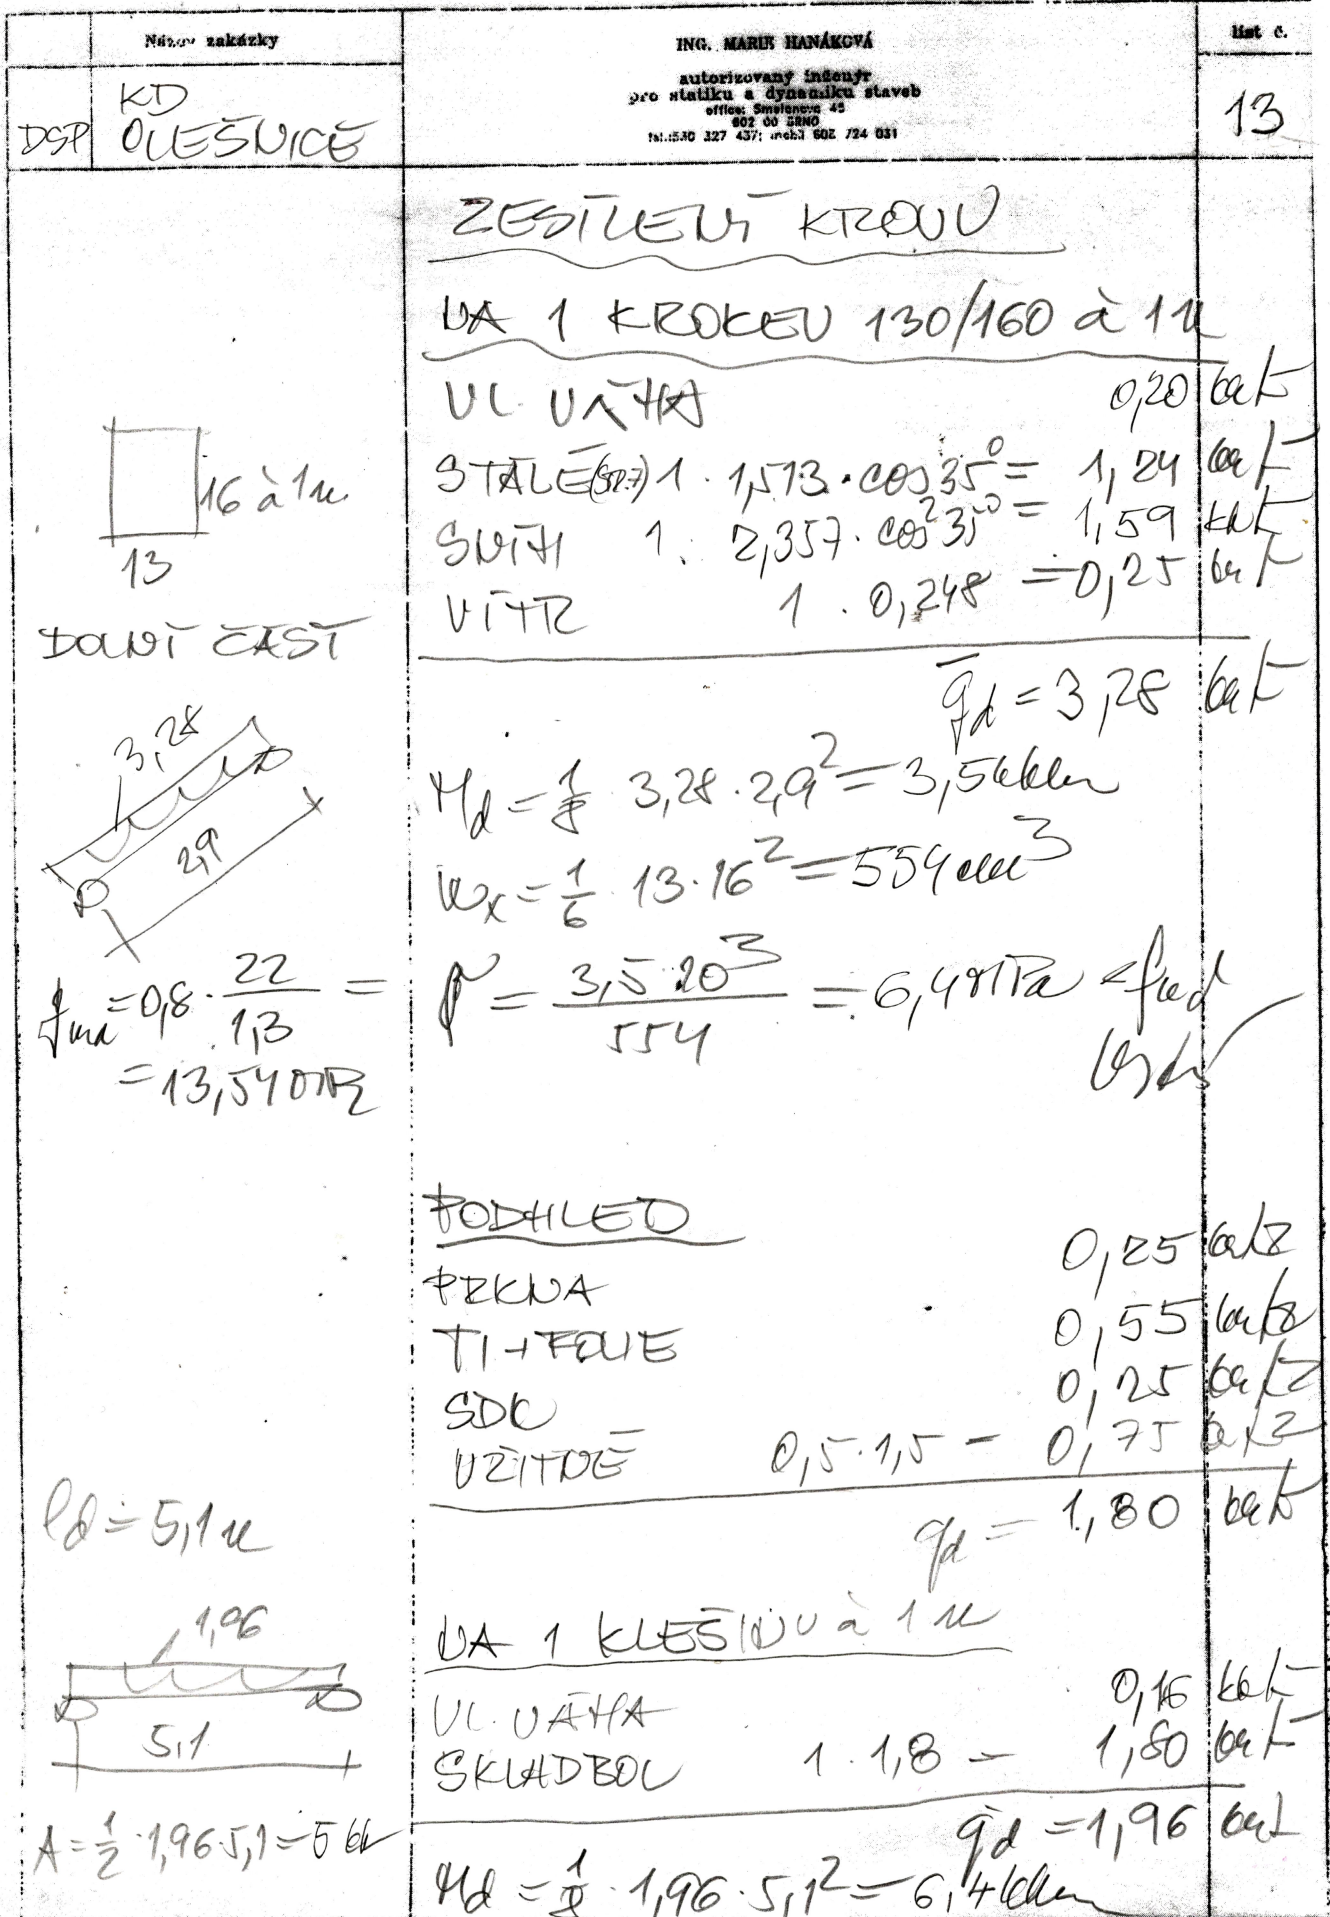 Název zakázky
ING. MARIE HANÁKOVÁ
list č.
autorizovaný inženýr
pro statiku a dynamiku staveb
office: Smetanova 45
602 00 BRNO
DSP
KD
OLEŠNICE
13
ZESÍLENÍ KROVU
NA 1 KROKEV 130/160 à 1m
VL. VÁHA 0,20 kN/m
STÁLÉ (STR.7) 1 . 1,513 . cos 35° = 1,24 kN/m
SNÍH 1 . 2,357 . cos² 35° = 1,59 kN/m
VÍTR 1 . 0,248 = 0,25 kN/m
16 à 1m
13
q̄d = 3,28 kN/m
DOLNÍ ČÁST
3,28
2,9
Md = 1/8 . 3,28 . 2,9² = 3,5 kNm
Wx = 1/6 . 13 . 16² = 554 cm³
fmd = 0,8 . 22/1,3 =
= 13,54 MPa
= 3,5 . 10³ / 554 = 6,4 MPa < fmd
PODHLED
PRKNA 0,25 kN/m2
TI + FOLIE 0,55 kN/m2
SDK 0,25 kN/m2
UŽITNÉ 0,5 . 1,5 = 0,75 kN/m2
qd = 1,80 kN/m
ld = 5,1 m
NA 1 KLEŠTINU à 1m
1,96
5,1
VL. VÁHA 0,16 kN/m
SKLADBOU 1 . 1,8 = 1,80 kN/m
q̄d = 1,96 kN/m
A = 1/2 . 1,96 . 5,1 = 5 kN
Md = 1/8 . 1,96 . 5,1² = 6,4 kNm